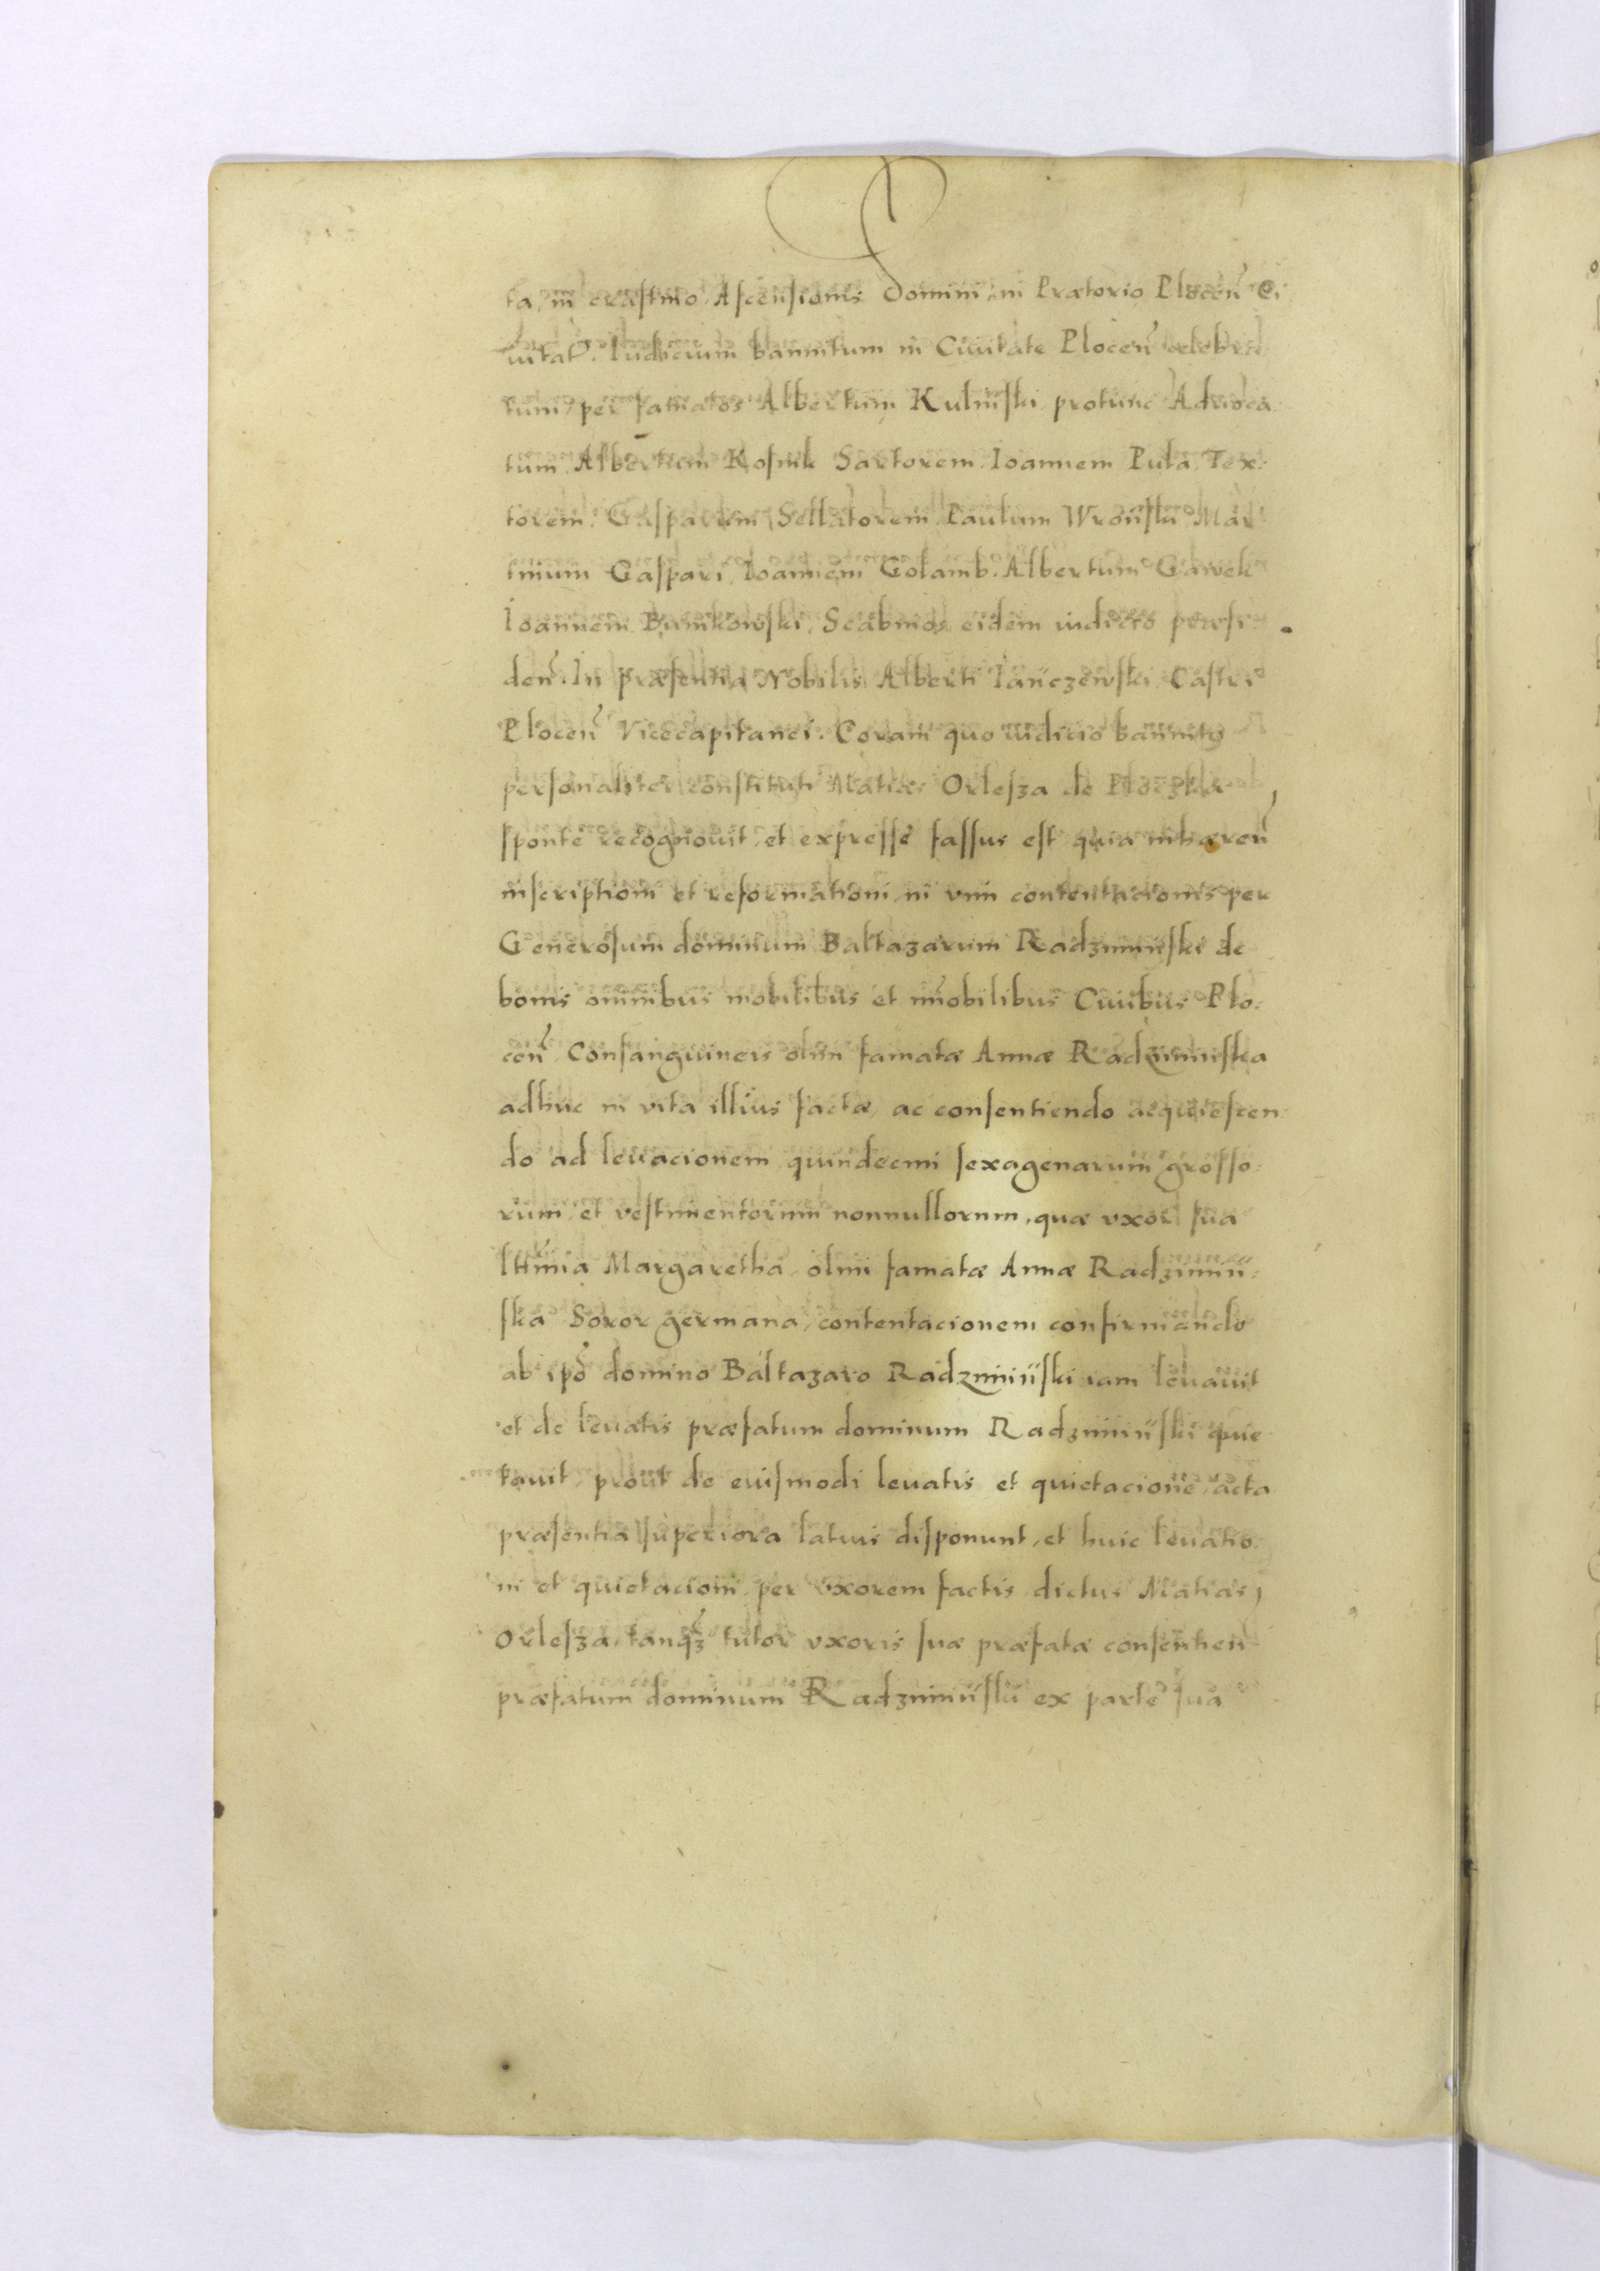 ta, in crastino Ascensionis Domini, in Prætorio Plocen̄ Ci
uitat. Iudicium bannitum in Ciuitate Plocen̄ celebra
tum, per famatos Albertum Kulniski protunc Aduoca
tum, Albertum Kosnik Sartorem, Ioannem Puła, Tex:
torem, Gasparum Sellatorem, Paulum Wroński Mar
tinum Gaspari, Ioannem Golamb, Albertum Gawek
Ioannem Bunikowski, Scabinos eidem iudicio præsi:
den̄. In præsentia Nobilis Alberti Iańczewski Castri
Plocen̄ Vicecapitanei. Coram quo iudicio bannito
personaliter constituti Matias Orlesza de
sponte recognouit, et expresse fassus est quia inhæren̄
inscriptioni et reformationi, in vim contentacionis per
Generosum dominum Baltazarum Radzimiński de
bonis omnibus mobilibus et im̄obilibus Ciuibus Plo:
cen̄ Consanguineis olim famatæ Annæ Radzimińska
adhuc in vita illius factæ, ac consentiendo acquiescen
do ad leuacionem quindecim sexagenarum grosso:
rum, et vestimentorum nonnullorum, quæ vxor sua
ltt̄mia Margaretha, olim famatæ Annæ Radzimiń:
ska Soror germana, contentacionem confirmando
ab ipō domino Baltazaro Radzimiński iam leuauit
et de leuatis præfatum dominum Radzimiński quie
tauit, prout de euismodi leuatis et quietacione, acta
præsentia superiora latius disponunt, et huic leuatio:
ni et quietacioni per vxorem factis dictus Matias
Orlesza, tanq̄ʒ tutor vxoris suæ præfatæ consentien̄
præfatum dominum Radzimiński ex parte sua